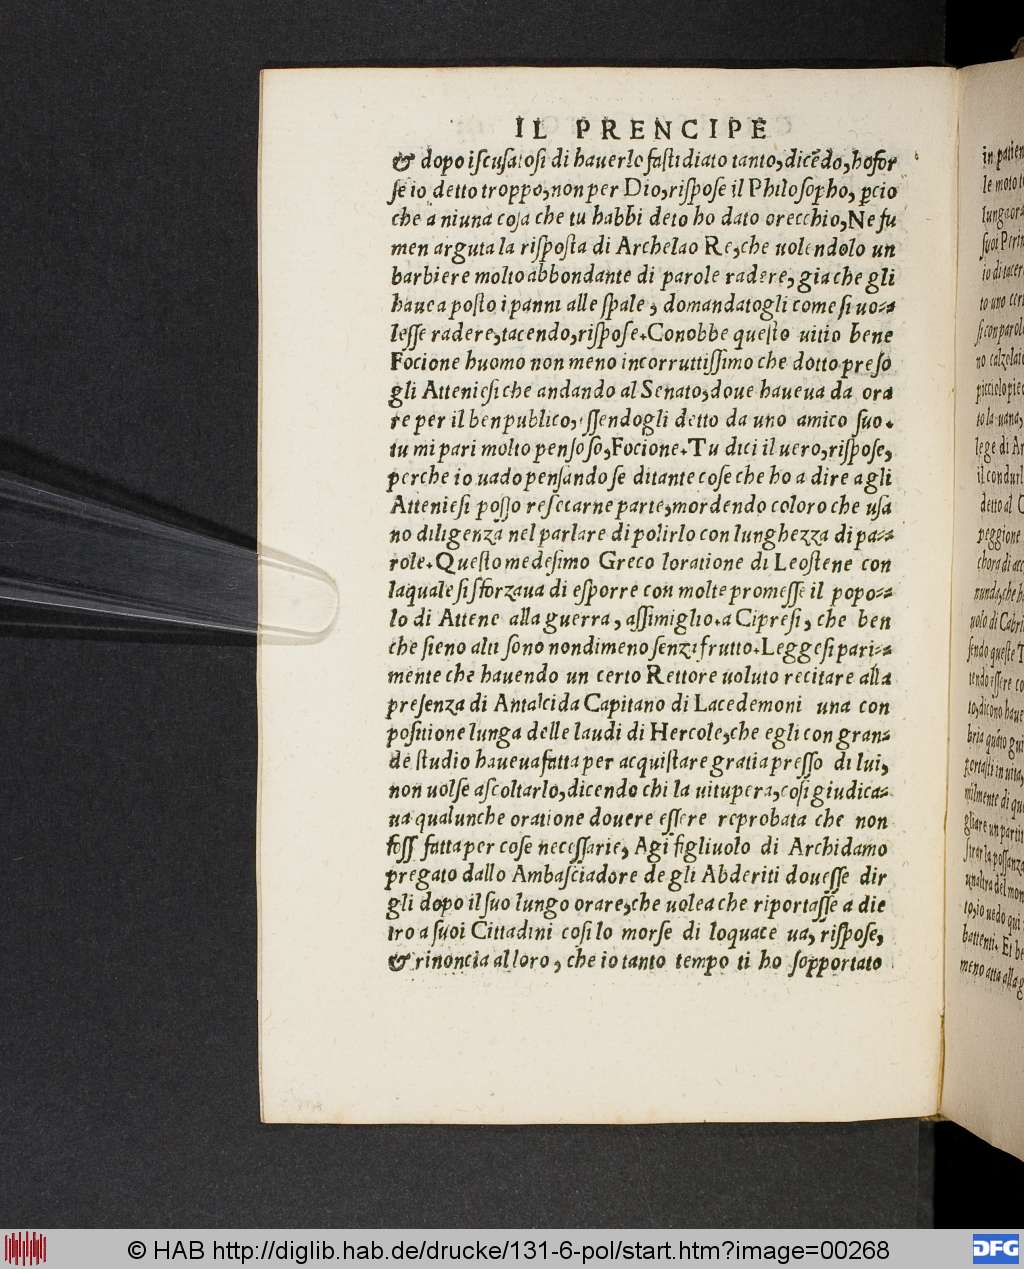 IL PRENCIPE
& dopo iscusatosi di hauerlo fastidiato tanto, dicẽdo, ho for
se io detto troppo, non per Dio, rispose il Philosopho, ꝑcio
che a niuna cosa che tu habbi deto ho dato orecchio, Ne fu
men arguta la risposta di Archelao Re, che uolendolo un
barbiere molto abbondante di parole radere, gia che gli
hauea posto i panni alle spale, domandatogli come si uo=
lesse radere, tacendo, rispose. Conobbe questo uitio bene
Focione huomo non meno incorruttissimo che dotto preso
gli Atteniesi che andando al Senato, doue haueua da ora
re per il ben publico, ssendogli detto da uno amico suo.
tu mi pari molto pensoso, Focione. Tu dici il uero, rispose,
perche io uado pensando se di tante cose che ho a dire a gli
Atteniesi posso resecarne parte, mordendo coloro che usa
no diligenza nel parlare di polirlo con lunghezza di pa=
role. Questo medesimo Greco loratione di Leostene con
laquale si sforzaua di esporre con molte promesse il popo=
lo di Attene alla guerra, assimiglio. a Cipresi, che ben
che sieno alti sono nondimeno senzi frutto. Leggesi pari=
mente che hauendo un certo Rettore uoluto recitare alla
presenza di Antalcida Capitano di Lacedemoni una con
positione lunga delle laudi di Hercole, che egli con gran=
de studio haueua fatta per acquistare gratia presso di lui,
non uolse ascoltarlo, dicendo chi la uitupera, cosi giudica=
ua qualunche oratione douere essere reprobata che non
foss fatta per cose necessarie, Agi figliuolo di Archidamo
pregato dallo Ambasciadore de gli Abderiti douesse dir
gli dopo il suo lungo orare, che uolea che riportasse a die
tro a suoi Cittadini cosi lo morse di loquace ua, rispose,
& rinoncia al loro, che io tanto tempo ti ho sopportato
© HAB http://diglib.hab.de/drucke/131-6-pol/start.htm?image=00268
DFG